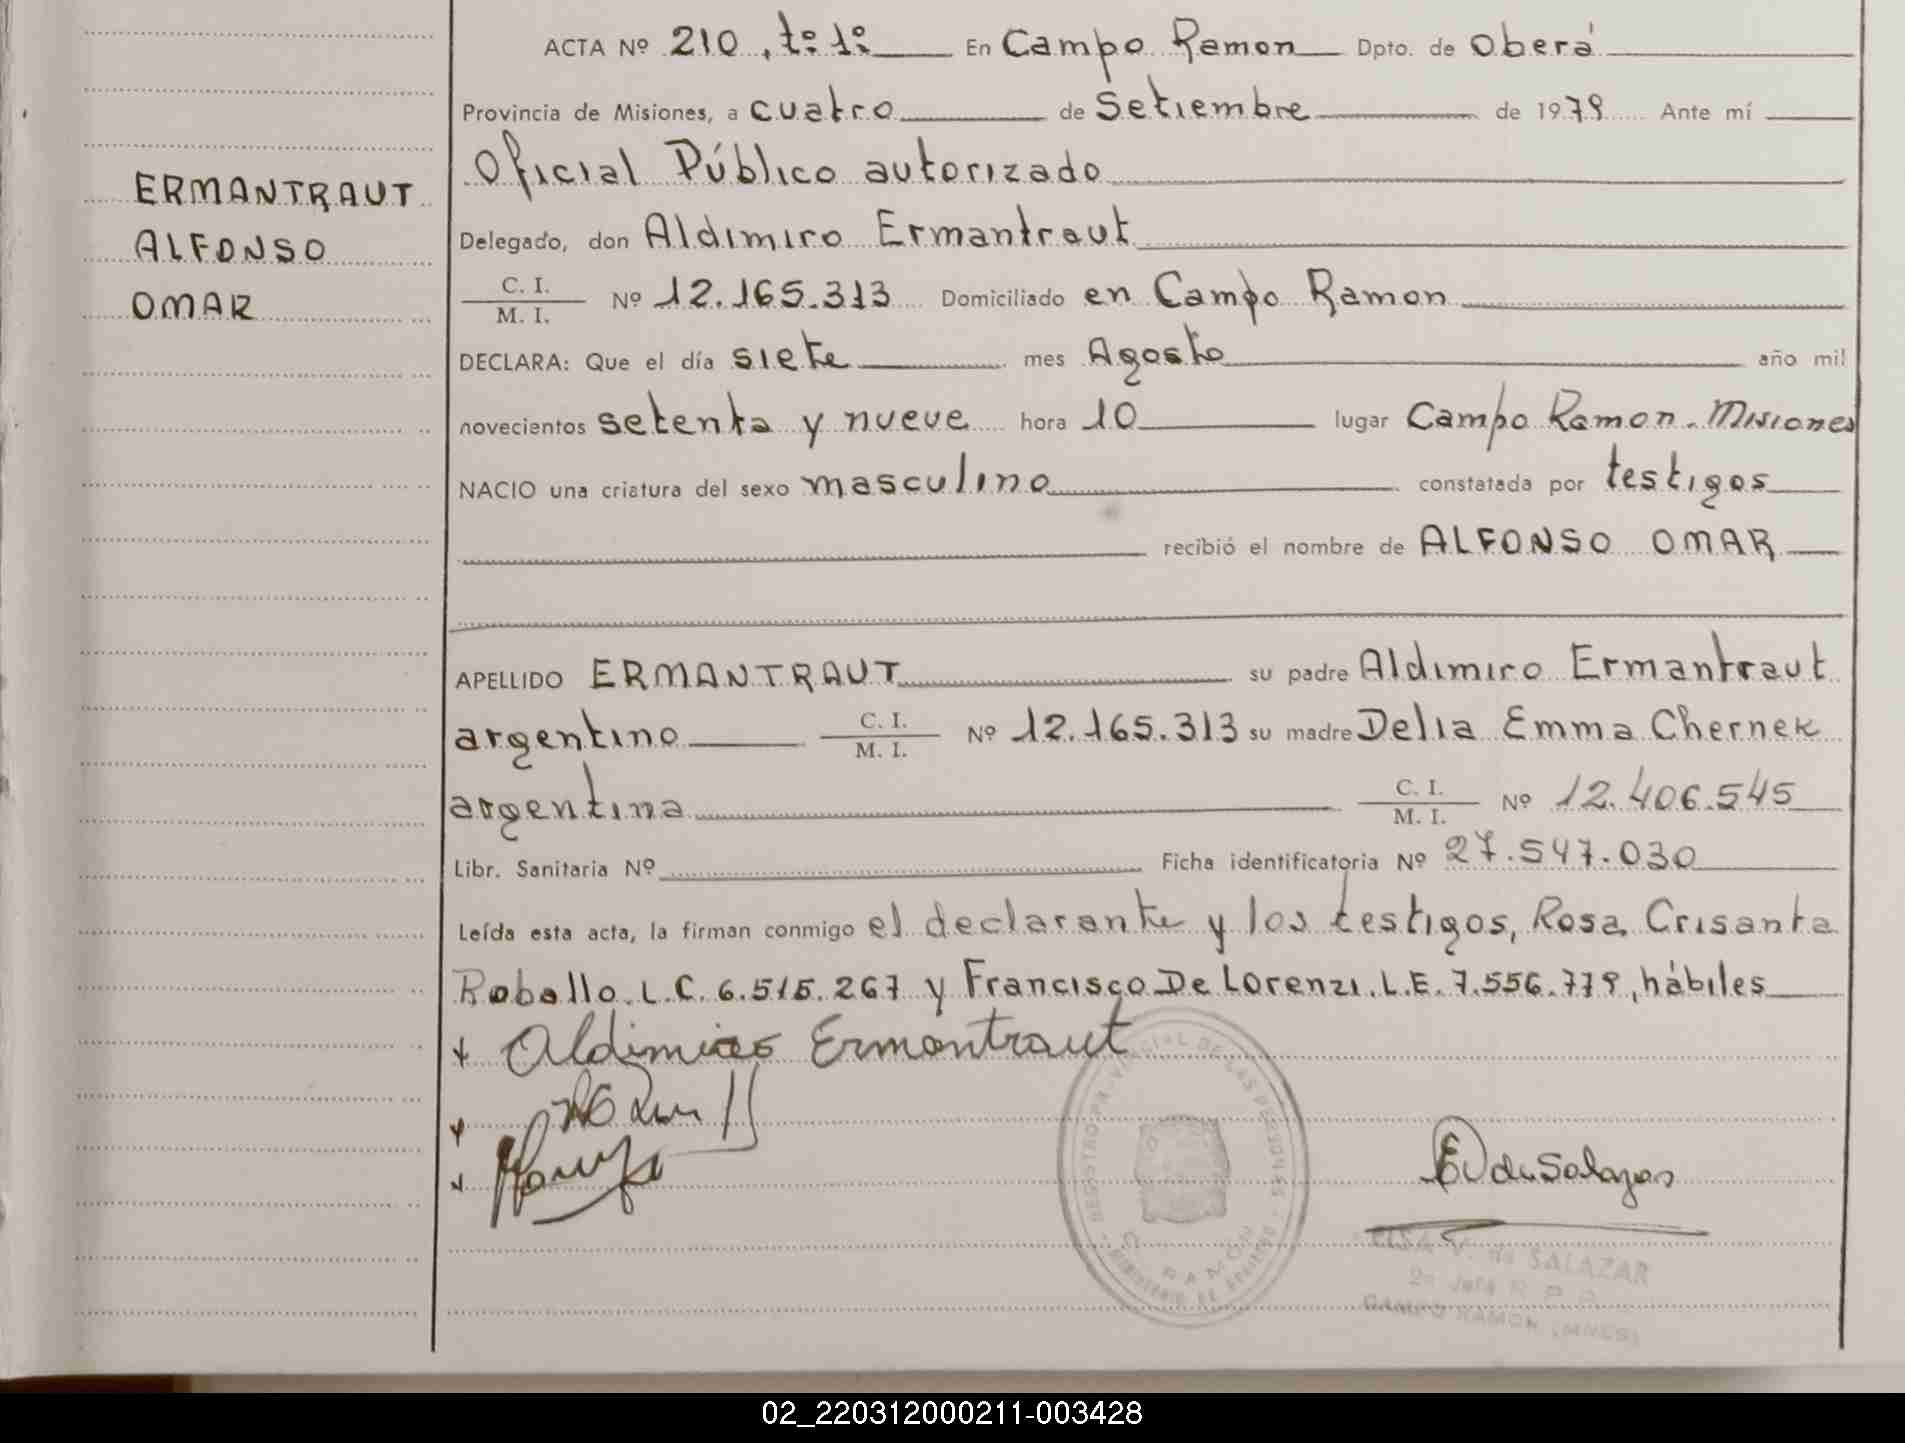 ACTA Nº 210, tº 1º En Campo Ramon Dpto. de Oberá
Provincia de Misiones, a cuatro de Setiembre de 1979 Ante mí
Oficial Público autorizado
ERMANTRAUT
ALFONSO
OMAR
Delegado, don Aldimiro Ermantraut
C. I.
M. I. Nº 12.165.313 Domiciliado en Campo Ramon
DECLARA: Que el día siete mes Agosto año mil
novecientos setenta y nueve hora 10 lugar Campo Ramon. Misiones
NACIO una criatura del sexo masculino constatada por testigos
recibió el nombre de ALFONSO OMAR
APELLIDO ERMANTRAUT su padre Aldimiro Ermantraut
argentino C. I. M. I. Nº 12.165.313 su madre Delia Emma Chernek
argentina C. I. M. I. Nº 12.406.545
Libr. Sanitaria Nº Ficha identificatoria Nº 27.547.030
Leída esta acta, la firman conmigo el declarante y los testigos, Rosa Crisanta
Robollo. L.C. 6.515.267 y Francisco De Lorenzi. L.E. 7.556.779, hábiles
Aldimiro Ermantraut
EV de Salazar
REGISTRO PROVINCIAL DE LAS PERSONAS
RAMON
ELSA V. de SALAZAR
2a Jefe R. P. P.
CAMPO RAMON (MNES)
02_220312000211-003428